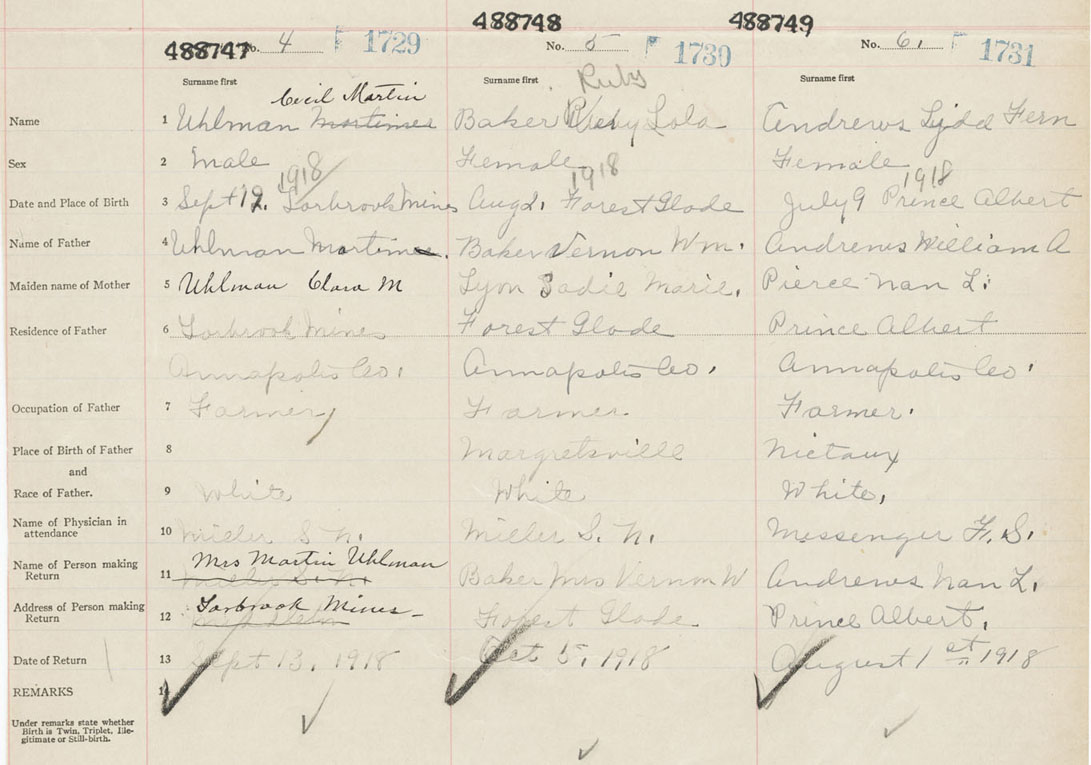 488747 488748 488749
No. 4 1729 No. 5 1730 No. 6. 1731
Surname first Surname first Surname first
Cecil Martin Ruby
Name 1 Uhlman Baker Ruby Lola Andrews Lydd Fern
Sex 2 Male Female Female
1918 1918 1918
Date and Place of Birth 3 Sept 12. Torbrook Mines Aug 2. Forest Glade July 9 Prince Albert
Name of Father 4 Uhlman Martin Baker Vernon Wm. Andrews William A
Maiden name of Mother 5 Uhlman Clara M Lyon Sadie Marie. Pierce Nan L.
Residence of Father 6 Torbrook Mines Forest Glade Prince Albert
Annapolis Co. Annapolis Co. Annapolis Co.
Occupation of Father 7 Farmer Farmer. Farmer.
Place of Birth of Father 8 Margretsville Nictaux
and
Race of Father. 9 White White White.
Name of Physician in attendance 10 Miller S. N. Miller S. N. Messenger F. S.
Mrs Martin Uhlman
Name of Person making Return 11 Miller S. N. Baker Mrs Vernon W Andrews Nan L.
Address of Person making Return 12 Torbrook Mines Forest Glade Prince Albert.
Date of Return 13 Sept 13. 1918 Oct 5. 1918 August 1st 1918
REMARKS 14
Under remarks state whether
Birth is Twin, Triplet, Ille-
gitimate or Still-birth.